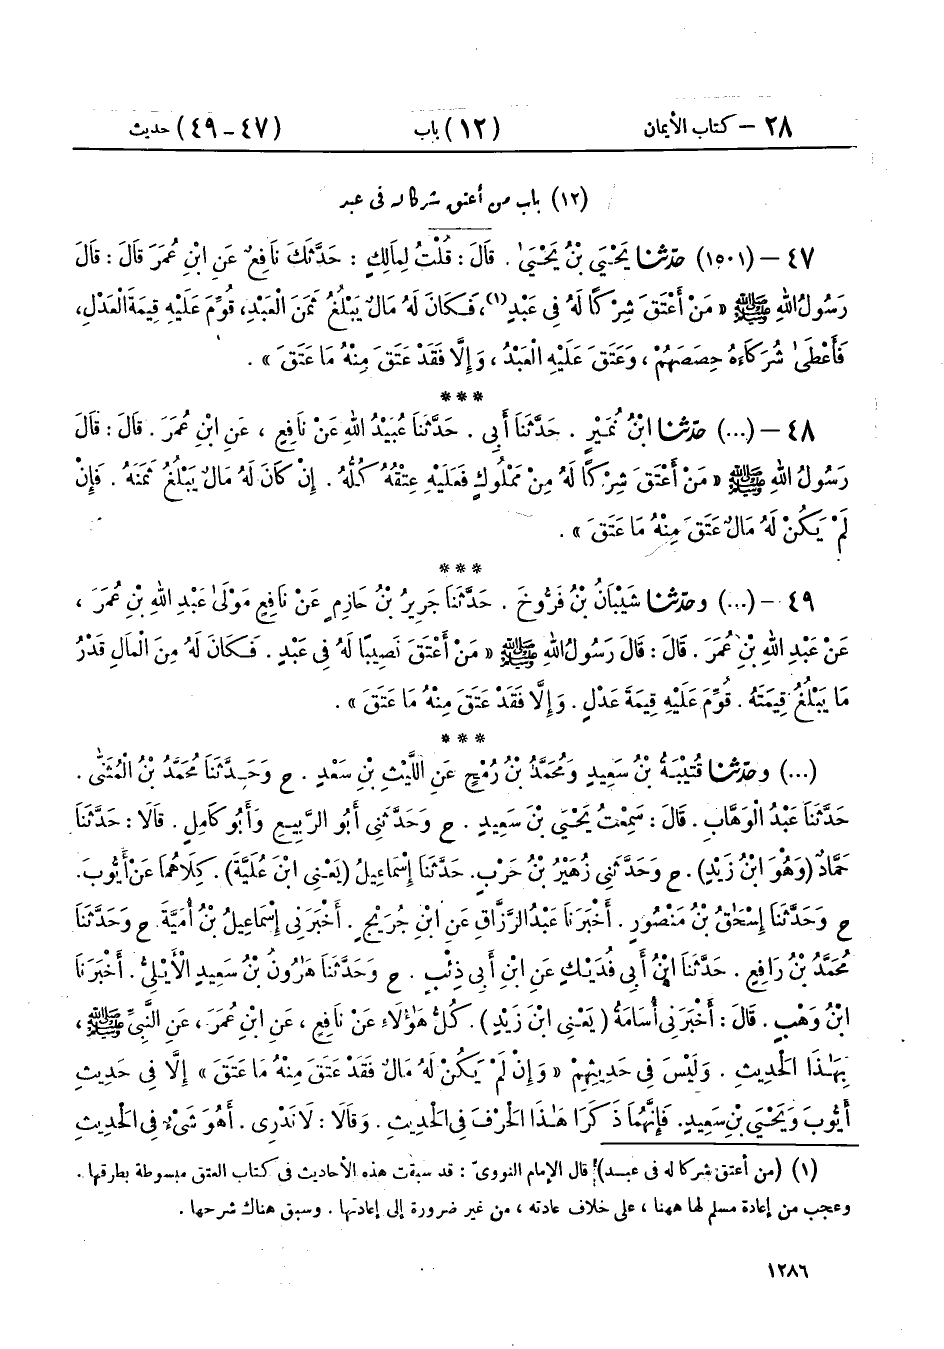 ٢٨ – كتاب الأيمان (١٢) باب (٤٧–٤٩) حديث
(١٢) باب من أعتق شركا له فى عبد
٤٧ – (١٥٠١) حدّثنا يَحْيَىٰ بْنُ يَحْيَىٰ . قَالَ : قُلْتُ لِمَالِكٍ : حَدَّثَكَ نَافِعٌ عَنِ ابْنِ عُمَرَ قَالَ : قَالَ
رَسُولُ اللهِ ﷺ « مَنْ أَعْتَقَ شِرْكًا لَهُ فِى عَبْدٍ(١)، فَكَانَ لَهُ مَالٌ يَبْلُغُ ثَمَنَ الْعَبْدِ، قُوِّمَ عَلَيْهِ قِيمَةَ الْعَدْلِ،
فَأَعْطَىٰ شُرَكَاءَهُ حِصَصَهُمْ ، وَعَتَقَ عَلَيْهِ الْعَبْدُ ، وَإِلَّا فَقَدْ عَتَقَ مِنْهُ مَا عَتَقَ » .
***
٤٨ – (...) حدّثنا ابْنُ نُمَيْرٍ . حَدَّثَنَا أَبِى . حَدَّثَنَا عُبَيْدُ اللهِ عَنْ نَافِعٍ ، عَنِ ابْنِ عُمَرَ . قَالَ : قَالَ
رَسُولُ اللهِ ﷺ « مَنْ أَعْتَقَ شِرْكًا لَهُ مِنْ مَمْلُوكٍ فَعَلَيْهِ عِتْقُهُ كُلُّهُ . إِنْ كَانَ لَهُ مَالٌ يَبْلُغُ ثَمَنَهُ . فَإِنْ
لَمْ يَكُنْ لَهُ مَالٌ عَتَقَ مِنْهُ مَا عَتَقَ » .
***
٤٩ – (...) وحدّثنا شَيْبَانُ بْنُ فَرُّوخَ . حَدَّثَنَا جَرِيرُ بْنُ حَازِمٍ عَنْ نَافِعٍ مَوْلَىٰ عَبْدِ اللهِ بْنِ عُمَرَ ،
عَنْ عَبْدِ اللهِ بْنِ عُمَرَ . قَالَ : قَالَ رَسُولُ اللهِ ﷺ « مَنْ أَعْتَقَ نَصِيبًا لَهُ فِى عَبْدٍ . فَكَانَ لَهُ مِنَ الْمَالِ قَدْرُ
مَا يَبْلُغُ قِيمَتَهُ . قُوِّمَ عَلَيْهِ قِيمَةَ عَدْلٍ . وَإِلَّا فَقَدْ عَتَقَ مِنْهُ مَا عَتَقَ » .
***
(...) وحدّثنا قُتَيْبَةُ بْنُ سَعِيدٍ وَمُحَمَّدُ بْنُ رُمْحٍ عَنِ اللَّيْثِ بْنِ سَعْدٍ . ح وَحَدَّثَنَا مُحَمَّدُ بْنُ الْمُثَنَّىٰ .
حَدَّثَنَا عَبْدُ الْوَهَّابِ . قَالَ : سَمِعْتُ يَحْيَىٰ بْنَ سَعِيدٍ . ح وَحَدَّثَنِى أَبُو الرَّبِيعِ وَأَبُو كَامِلٍ . قَالَا : حَدَّثَنَا
حَمَّادٌ (وَهُوَ ابْنُ زَيْدٍ) . ح وَحَدَّثَنِى زُهَيْرُ بْنُ حَرْبٍ . حَدَّثَنَا إِسْمَاعِيلُ (يَعْنِى ابْنَ عُلَيَّةَ) . كِلَاهُمَا عَنْ أَيُّوبَ.
ح وَحَدَّثَنَا إِسْحَٰقُ بْنُ مَنْصُورٍ . أَخْبَرَنَا عَبْدُ الرَّزَّاقِ عَنِ ابْنِ جُرَيْجٍ . أَخْبَرَنِى إِسْمَاعِيلُ بْنُ أُمَيَّةَ . ح وَحَدَّثَنَا
مُحَمَّدُ بْنُ رَافِعٍ . حَدَّثَنَا ابْنُ أَبِى فُدَيْكٍ عَنِ ابْنِ أَبِى ذِئْبٍ . ح وَحَدَّثَنَا هَٰرُونُ بْنُ سَعِيدٍ الْأَيْلِىُّ . أَخْبَرَنَا
ابْنُ وَهْبٍ . قَالَ : أَخْبَرَنِى أُسَامَةُ (يَعْنِى ابْنَ زَيْدٍ) . كُلُّ هَٰؤُلَاءِ عَنْ نَافِعٍ ، عَنِ ابْنِ عُمَرَ ، عَنِ النَّبِىِّ ﷺ ،
بِهَٰذَا الْحَدِيثِ . وَلَيْسَ فِى حَدِيثِهِمْ « وَإِنْ لَمْ يَكُنْ لَهُ مَالٌ فَقَدْ عَتَقَ مِنْهُ مَا عَتَقَ » إِلَّا فِى حَدِيثِ
أَيُّوبَ وَيَحْيَىٰ بْنِ سَعِيدٍ. فَإِنَّهُمَا ذَكَرَا هَٰذَا الْحَرْفَ فِى الْحَدِيثِ . وَقَالَا : لَا نَدْرِى . أَهُوَ شَىْءٌ فِى الْحَدِيثِ
(١) (من أعتق شركا له فى عبد) قال الإمام النووىّ : قد سبقت هذه الأحاديث فى كتاب العتق مبسوطة بطرقها .
وعجب من إعادة مسلم لها ههنا ، على خلاف عادته ، من غير ضرورة إلى إعادتها . وسبق هناك شرحها .
١٢٨٦